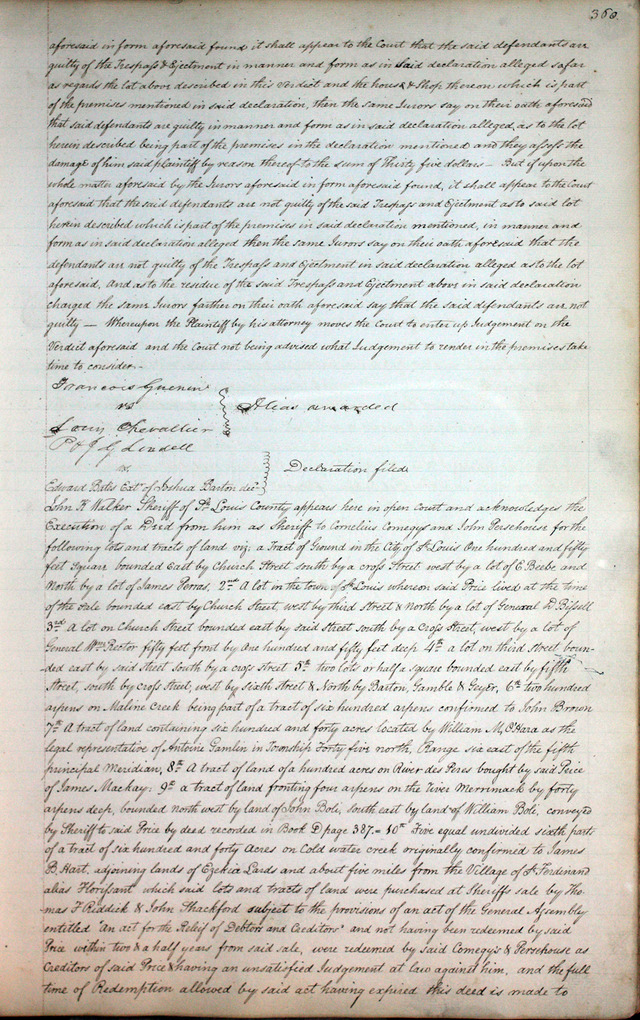 360
aforesaid in form aforesaid found it shall appear to the Court that the said defendants are
guilty of the Trespass & Ejectment in manner and form as in said declaration alleged so far
as regards the lot above described in this Verdict and the house & Shop thereon which is part
of the premises mentioned in said declaration, then the same Jurors say on their oath aforesaid
that said defendants are guilty in manner and form as in said declaration alleged, as to the lot
herein described being part of the premises in the declaration mentioned and they assess the
damage of him said plaintiff by reason thereof to the sum of Thirty five dollars — But if upon the
whole matter aforesaid by the Jurors aforesaid in form aforesaid found, it shall appear to the Court
aforesaid that the said defendants are not guilty of the said Trespass and Ejectment as to said lot
herein described which is part of the premises in said declaration mentioned, in manner and
form as in said declaration alleged then the same Jurors say on their oath aforesaid that the
defendants are not guilty of the Trespass and Ejectment in said declaration alleged as to the lot
aforesaid, And as to the residue of the said Trespass and Ejectment above in said declaration
charged the same Jurors farther on their oath aforesaid say that the said defendants are not
guilty — Whereupon the Plaintiff by his attorney moves the Court to enter up Judgement on the
Verdict aforesaid and the Court not being advised what Judgement to render in the premises take
time to consider.
Francois Guenin
vs
Alias awarded
Louis Chevallier
P & J G Lindell
vs
Declaration filed
Edward Bates Exr. of Joshua Barton decd
John K Walker Sheriff of St Louis County appears here in open court and acknowledges the
Execution of a Deed from him as Sheriff to Cornelius Comegys and John Persehouse for the
following lots and tracts of land viz; a Tract of Ground in the City of St Louis One hundred and fifty
feet Square bounded East by Church Street south by a cross Street west by a lot of E Beebe and
North by a lot of James Perras, 2nd A lot in the town of St Louis whereon said Price lived at the time
of the sale bounded east by Church Street, west by third Street & North by a lot of General D. Bissell
3rd A lot on Church Street bounded east by said Street south by a Cross Street, west by a lot of
General Wm Rector fifty feet front by One hundred and fifty feet deep 4th a lot on third Street boun-
ded east by said Street South by a cross street 5th two lots or half a square bounded east by fifth
Street, south by cross Street, west by sixth street & North by Barton, Gamble & Geyer, 6th two hundred
arpens on Maline Creek being part of a tract of six hundred arpens confirmed to John Brown
7th A tract of land containing six hundred and forty acres located by William M. OHara as the
legal representative of Antoine Gamlin in Township Forty five north, Range six east of the fifth
principal Meridian, 8th A tract of land of a hundred acres on River des Peres bought by said Price
of James Mackay; 9th a tract of land fronting four arpens on the River Merrimack by forty
arpens deep, bounded north west by land of John Boli, south east by land of William Boli, conveyed
by Sheriff to said Price by deed recorded in Book D page 387. 10th Five equal undivided sixth parts
of a tract of six hundred and forty Acres on Cold water creek originally confirmed to James
B. Hart, adjoining lands of Ezekia Lards and about five miles from the Village of St Ferdinand
alias Florisant which said lots and tracts of land were purchased at Sheriffs sale by Tho-
mas F Riddick & John Shackford subject to the provisions of an act of the General Assembly
entitled "An act for the Relief of Debtors and Creditors" and not having been redeemed by said
Price within two & a half years from said sale, were redeemed by said Comegys & Persehouse as
Creditors of said Price & having an unsatisfied Judgement at law against him, and the full
time of Redemption allowed by said act having expired this deed is made to